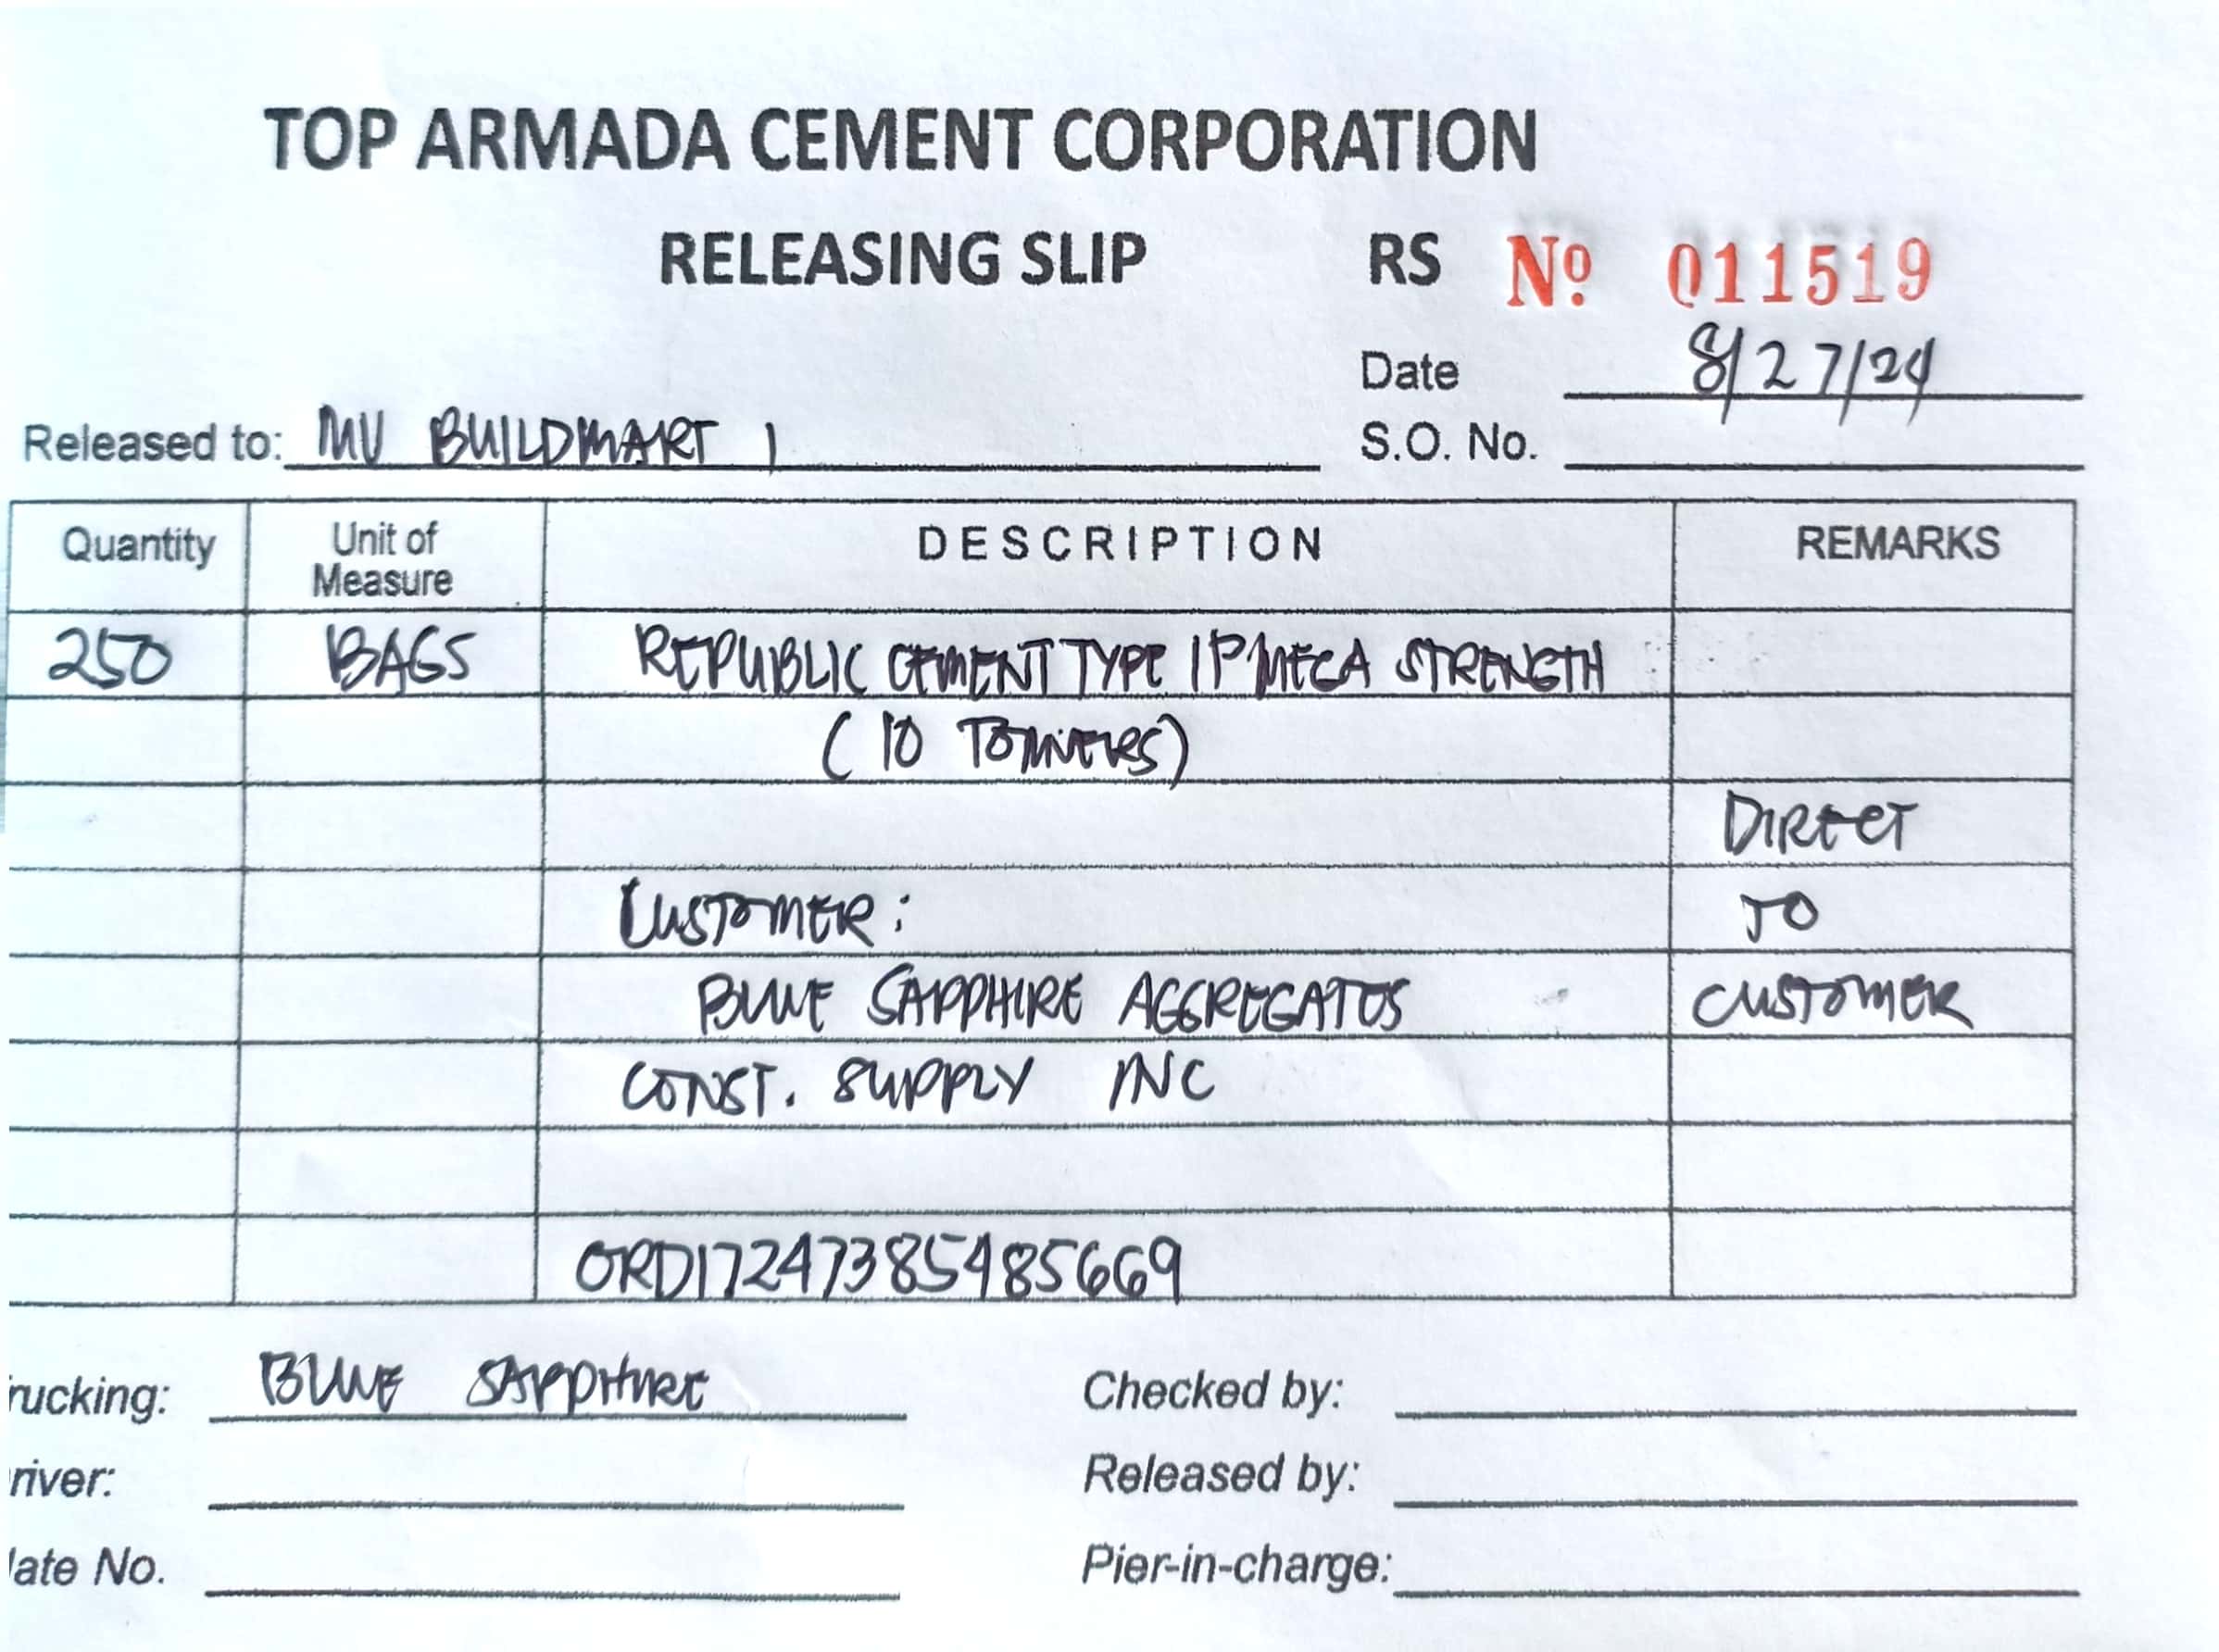 TOP ARMADA CEMENT CORPORATION
RELEASING SLIP RS Nº 011519
Date 8/27/24
Released to: MV BUILDMART 1 S.O. No.
Quantity Unit of Measure DESCRIPTION REMARKS
250 BAGS REPUBLIC CEMENT TYPE 1P MEGA STRENGTH
(10 TONNERS)
DIRECT
CUSTOMER: TO
BLUE SAPPHIRE AGGREGATES CUSTOMER
CONST. SUPPLY INC
ORD17247385485669
rucking: BLUE SAPPHIRE Checked by:
river: Released by:
late No. Pier-in-charge: